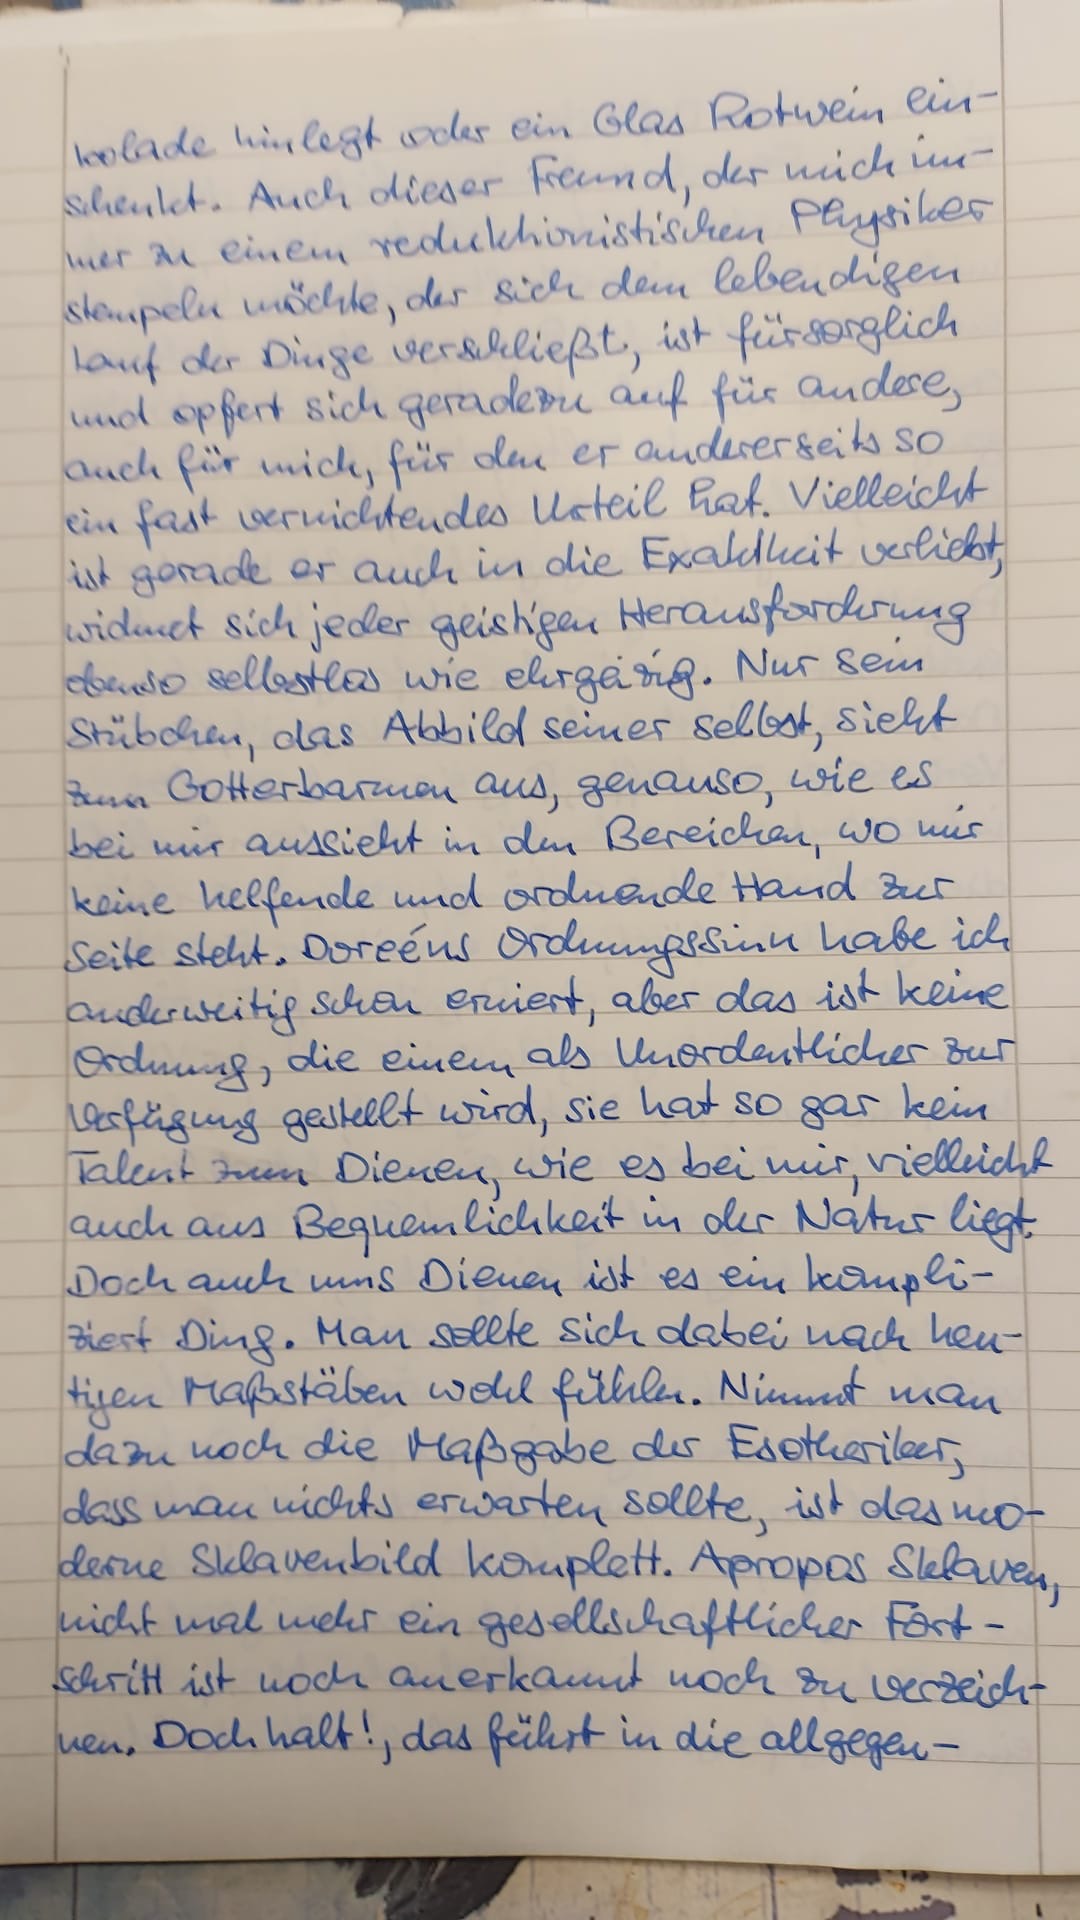 kolade hinlegt oder ein Glas Rotwein ein-
schenkt. Auch dieser Freund, der mich im-
mer zu einem reduktionistischen Physiker
stempeln möchte, der sich dem lebendigen
Lauf der Dinge verschließt, ist fürsorglich
und opfert sich geradezu auf für andere,
auch für mich, für den er andererseits so
ein fast vernichtendes Urteil hat. Vielleicht
ist gerade er auch in die Exaktheit verliebt,
widmet sich jeder geistigen Herausforderung
ebenso selbstlos wie ehrgeizig. Nur sein
Stübchen, das Abbild seiner selbst, sieht
zum Gotterbarmen aus, genauso, wie es
bei mir aussieht in den Bereichen, wo mir
keine helfende und ordnende Hand zur
Seite steht. Doreéns Ordnungssinn habe ich
anderweitig schon eruiert, aber das ist keine
Ordnung, die einem als Unordentlicher zur
Verfügung gestellt wird, sie hat so gar kein
Talent zum Dienen, wie es bei mir, vielleicht
auch aus Bequemlichkeit in der Natur liegt.
Doch auch ums Dienen ist es ein kompli-
ziert Ding. Man sollte sich dabei nach heu-
tigen Maßstäben wohl fühlen. Nimmt man
dazu noch die Maßgabe der Esotheriker,
dass man nichts erwarten sollte, ist das mo-
derne Sklavenbild komplett. Apropos Sklaven,
nicht mal mehr ein gesellschaftlicher Fort-
schritt ist noch anerkannt noch zu verzeich-
nen. Doch halt!, das führt in die allgegen-